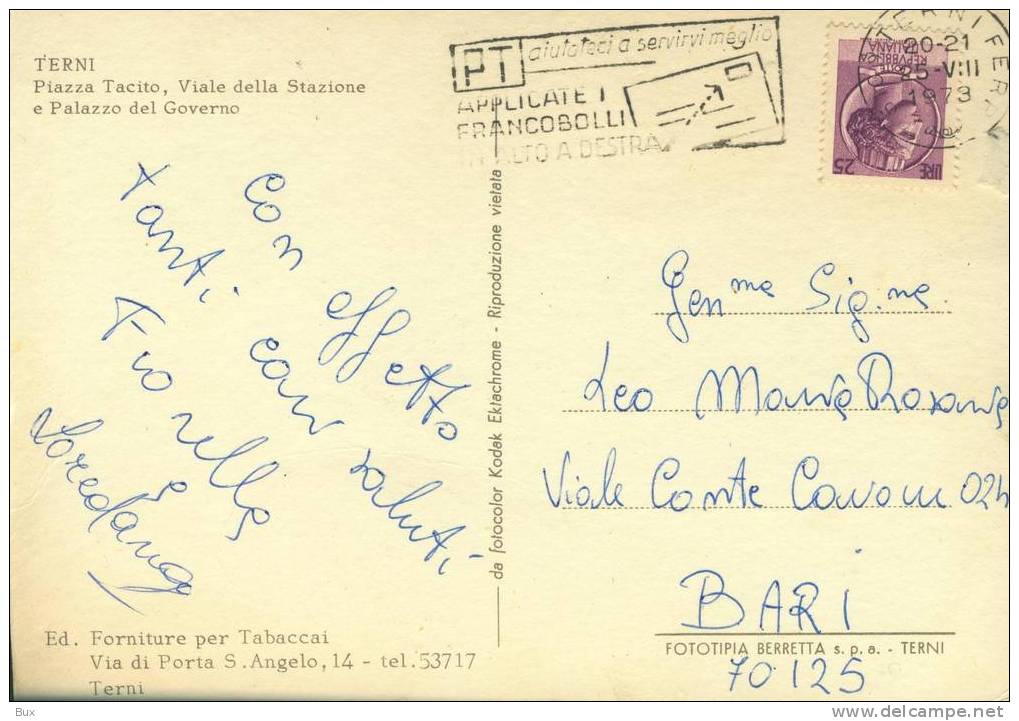 TERNI
Piazza Tacito, Viale della Stazione
e Palazzo del Governo
PT aiutateci a servirvi meglio
APPLICATE I
FRANCOBOLLI
IN ALTO A DESTRA
TERNI FERR
20-21
25-VIII
1973
REPVBBLICA
ITALIANA
LIRE 25
Con affetto
tanti cari saluti
Fiorella
Loredana
da fotocolor Kodak Ektachrome - Riproduzione vietata
Gen.ma Sig.na
Leo Maria Rosaria
Viale Conte Cavour
BARI
70125
Ed. Forniture per Tabaccai
Via di Porta S. Angelo, 14 - tel. 53717
Terni
FOTOTIPIA BERRETTA s.p.a. - TERNI
Bux
www.delcampe.net